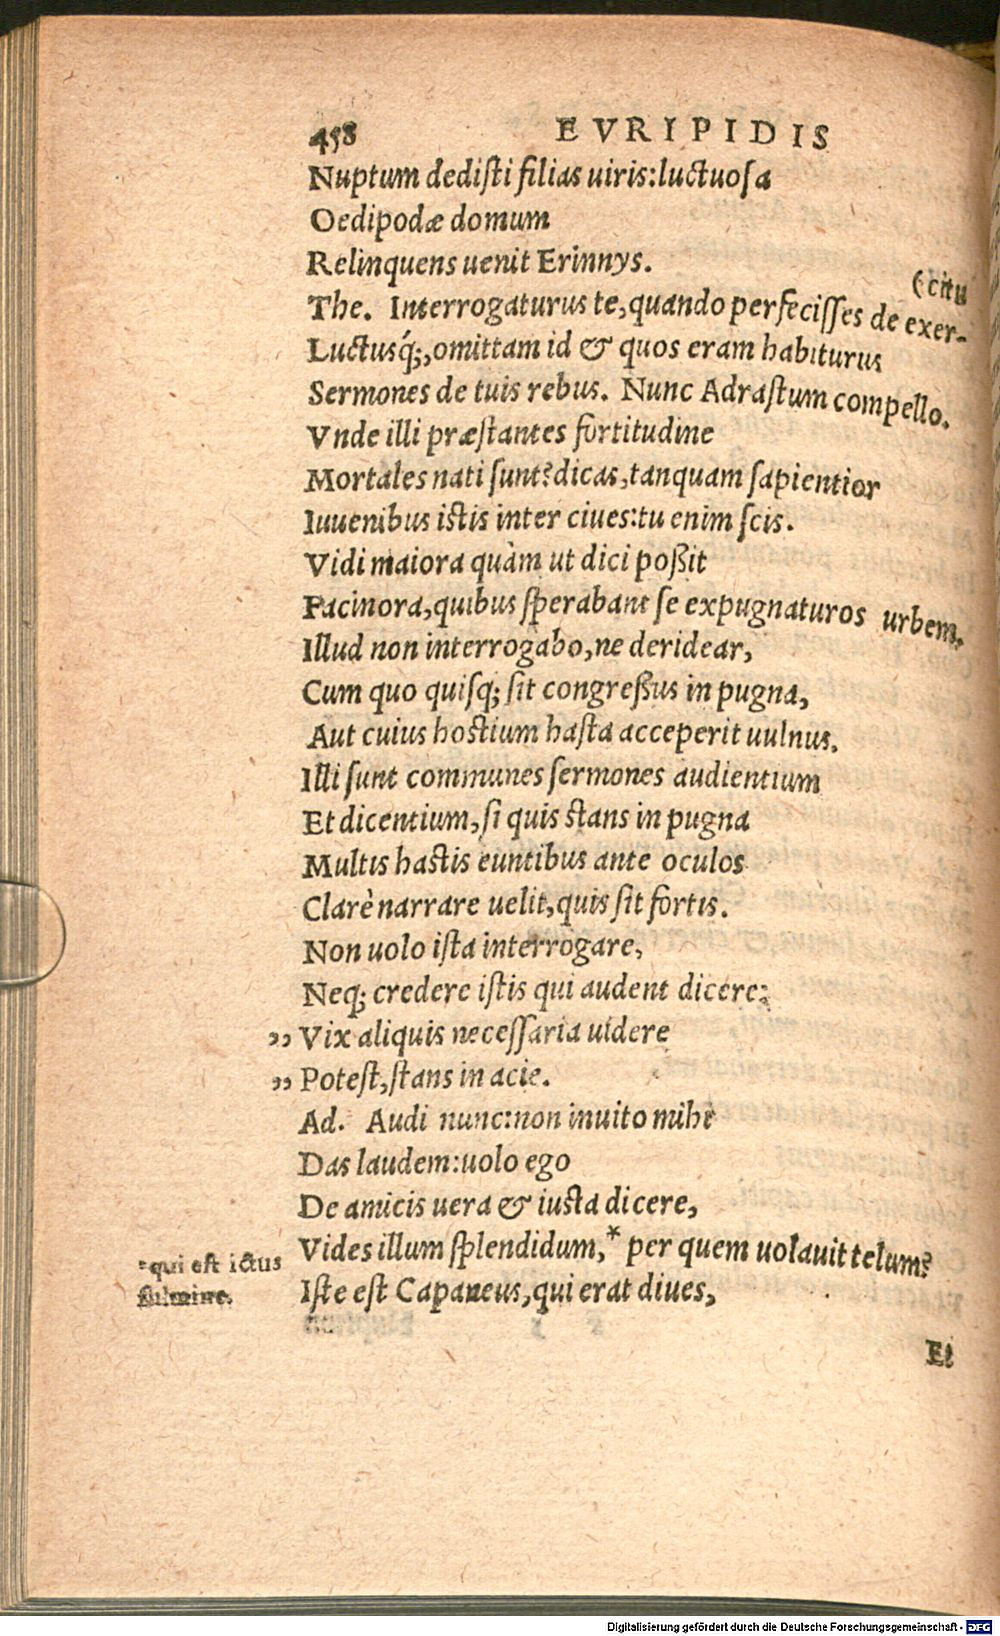 458 EVRIPIDIS
Nuptum dediſti filias uiris:luctuoſa
Oedipodæ domum
Relinquens uenit Erinnys.
(citu
The. Interrogaturus te,quando perfeciſſes de exer-
Luctusq́;,omittam id & quos eram habiturus
Sermones de tuis rebus. Nunc Adraſtum compello.
Vnde illi præſtantes fortitudine
Mortales nati ſunt?dicas,tanquam ſapientior
Iuuenibus iſtis inter ciues:tu enim ſcis.
Vidi maiora quàm ut dici poßit
Facinora,quibus ſperabant ſe expugnaturos urbem.
Illud non interrogabo,ne deridear,
Cum quo quiſq; ſit congreßus in pugna,
Aut cuius hoſtium haſta acceperit uulnus.
Illi ſunt communes ſermones audientium
Et dicentium,ſi quis ſtans in pugna
Multis haſtis euntibus ante oculos
Clarè narrare uelit,quis ſit fortis.
Non uolo iſta interrogare,
Neq; credere iſtis qui audent dicere:
„ Vix aliquis neceſſaria uidere
„ Poteſt,ſtans in acie.
Ad. Audi nunc:non inuito mihi
Das laudem:uolo ego
De amicis uera & iuſta dicere,
Vides illum ſplendidum,* per quem uolauit telum?
*qui eſt ictus
fulmine.
Iſte eſt Capaneus,qui erat diues,
Et
Digitalisierung gefördert durch die Deutsche Forschungsgemeinschaft - DFG